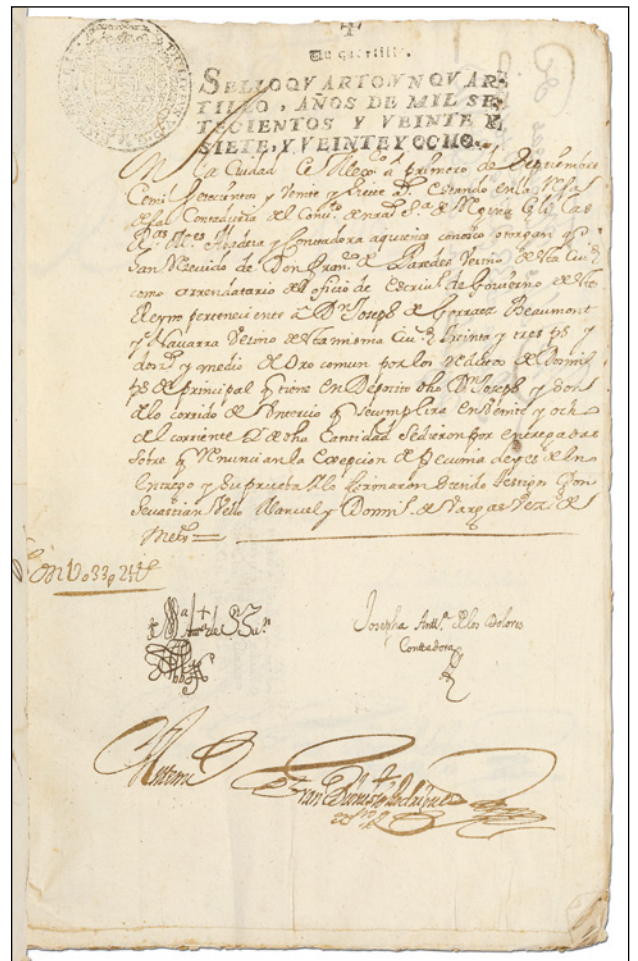 Un quartillo.
SELLO QVARTO VN QVAR
TILLO, AÑOS DE MIL SE
TECIENTOS Y VEINTE Y
SIETE, Y VEINTE Y OCHO.
En la Ciudad de Mexco. a primero de Septiembre
de mil setecientos y Veinte y siete Estando en la
Contaduria del Convto. de nra. Sa. de
Abadesa y Contadora a quienes conosco otorgan q
han Rezevido de Don Franco. de Paredes Vezino de esta Ciud
como arrendatario del oficio de Govierno de este
Reyno perteneciente a Dn Joseph de Gorraez Beaumont
y Navarra Vecino de esta misma Ciud treinta y tres ps y
dos rs y medio de Oro comun por los reditos de Dosmil
ps de principal q tiene en Deposito dho Dn Joseph y son
de lo corrido de Untercio q secumplira en Veinte y ocho
del corriente de dha Cantidad sedieron por entregadas
sobre q Renuncian la Excepcion de Pecunia leyes de la
Entrego y su prueba y lo firmaron siendo testigos Don
Sevastian Vello Manuel y de Vargas Vezs de
Mexco
Josepha Antta. de los Dolores
Contadora
Antemi
Franco Dionisio Rodriguez